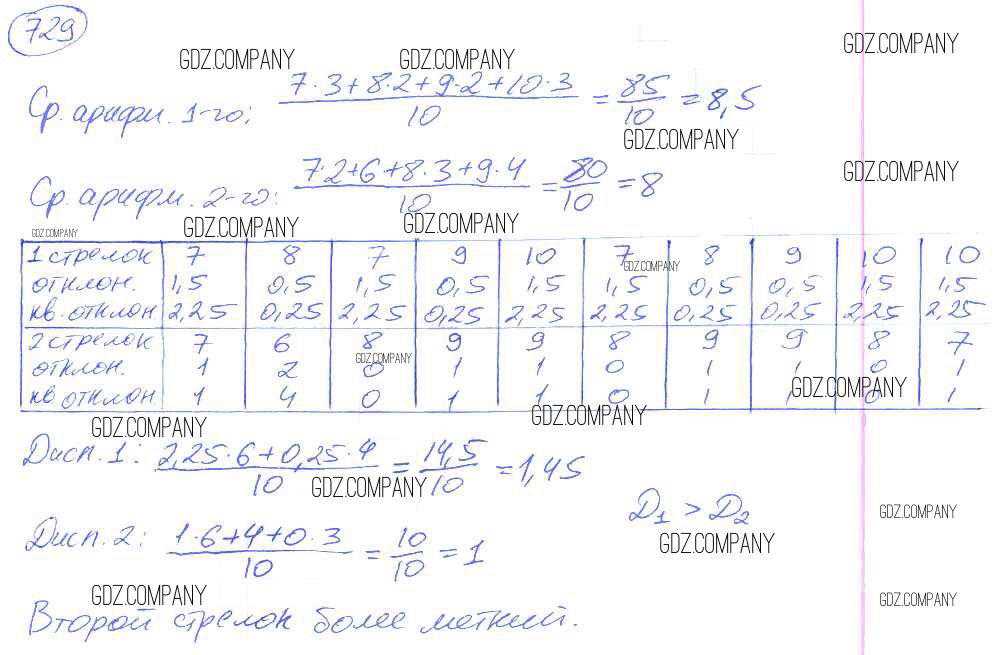 729
GDZ.COMPANY GDZ.COMPANY GDZ.COMPANY
Ср. арифм. 1-го: (7·3+8·2+9·2+10·3)/10 = 85/10 = 8,5
GDZ.COMPANY
GDZ.COMPANY
Ср. арифм. 2-го: (7·2+6+8·3+9·4)/10 = 80/10 = 8
GDZ.COMPANY GDZ.COMPANY GDZ.COMPANY
1 стрелок 7 8 7 9 10 7 8 9 10 10
GDZ.COMPANY
отклон. 1,5 0,5 1,5 0,5 1,5 1,5 0,5 0,5 1,5 1,5
кв. отклон 2,25 0,25 2,25 0,25 2,25 2,25 0,25 0,25 2,25 2,25
2 стрелок 7 6 8 9 9 8 9 9 8 7
GDZ.COMPANY
отклон. 1 2 0 1 1 0 1 1 0 1
кв отклон 1 4 0 1 1 0 1 1 0 1
GDZ.COMPANY
GDZ.COMPANY GDZ.COMPANY
Дисп. 1: (2,25·6+0,25·4)/10 = 14,5/10 = 1,45
GDZ.COMPANY
D₁ > D₂ GDZ.COMPANY
Дисп. 2: (1·6+4+0·3)/10 = 10/10 = 1
GDZ.COMPANY
GDZ.COMPANY GDZ.COMPANY
Второй стрелок более меткий.